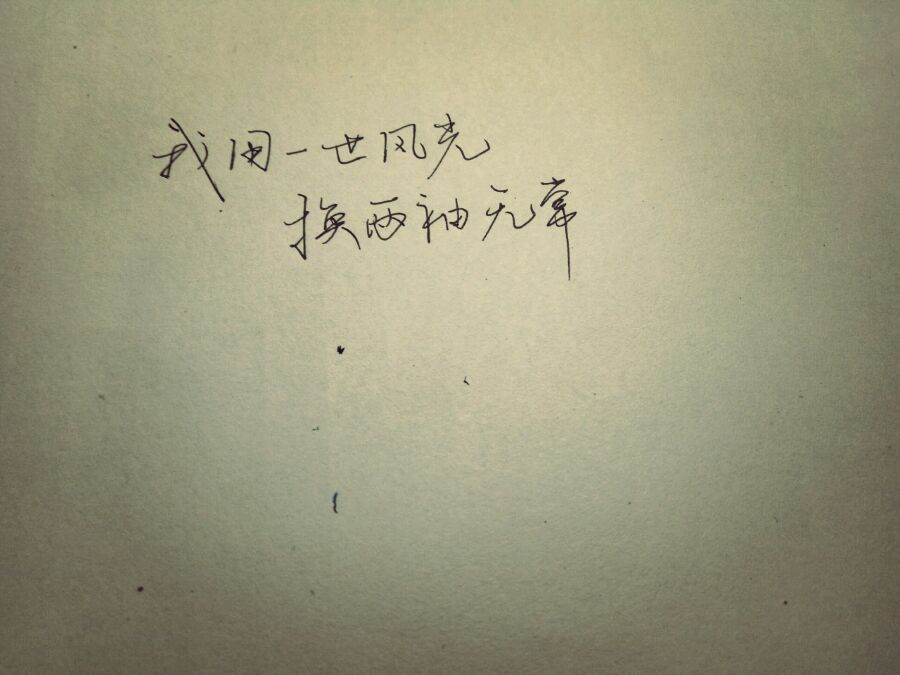 我用一世风光
换两袖无常